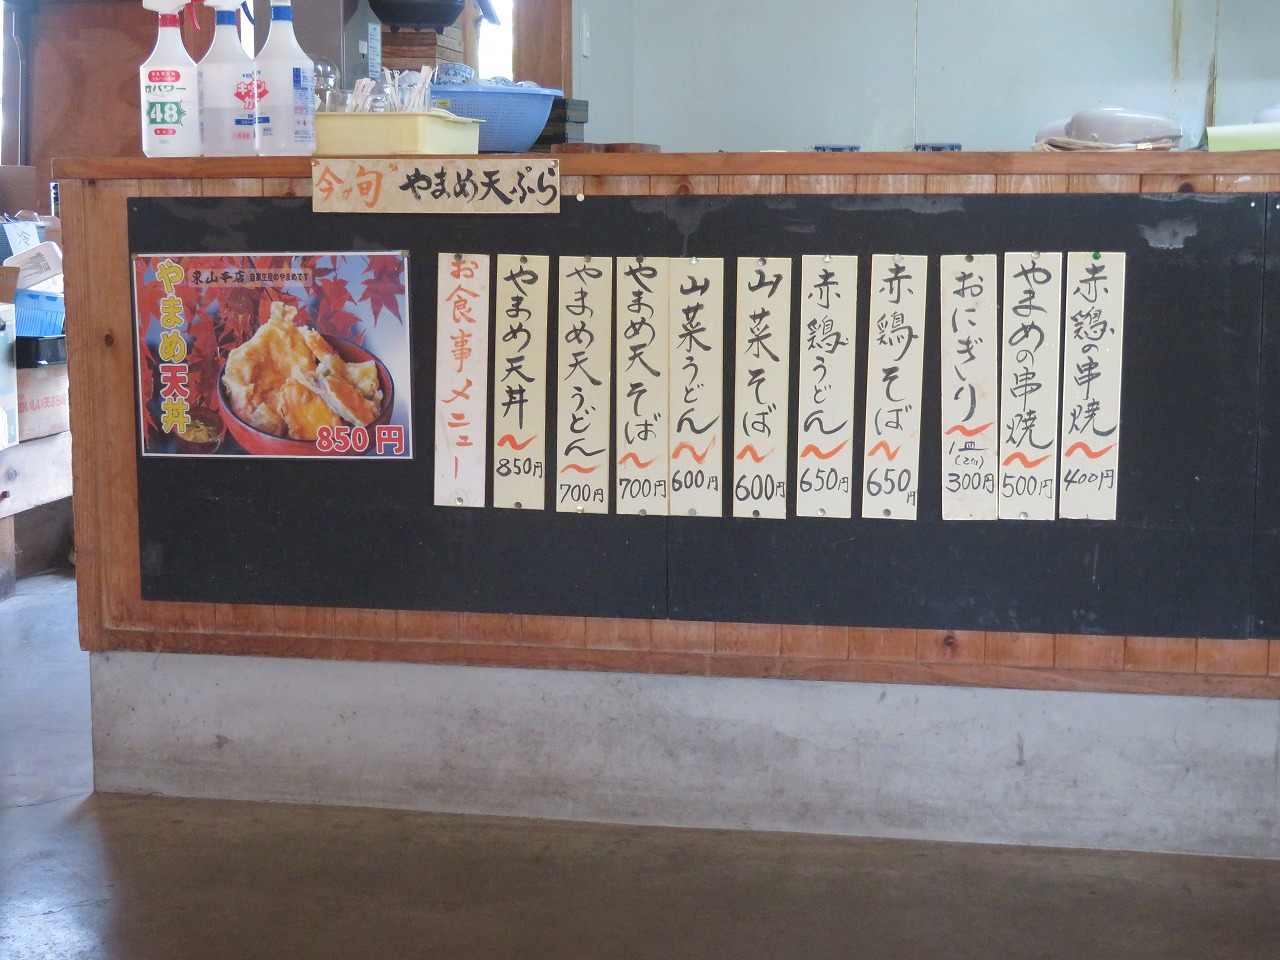 48
今が旬
やまめ天ぷら
東山本店 自家生産のやまめです
やまめ天丼
850円
お食事メニュー
やまめ天丼
850円
やまめ天うどん
700円
やまめ天そば
700円
山菜うどん
600円
山菜そば
600円
赤鶏うどん
650円
赤鶏そば
650円
おにぎり
1皿
(2ケ)
300円
やまめの串焼
500円
赤鶏の串焼
400円